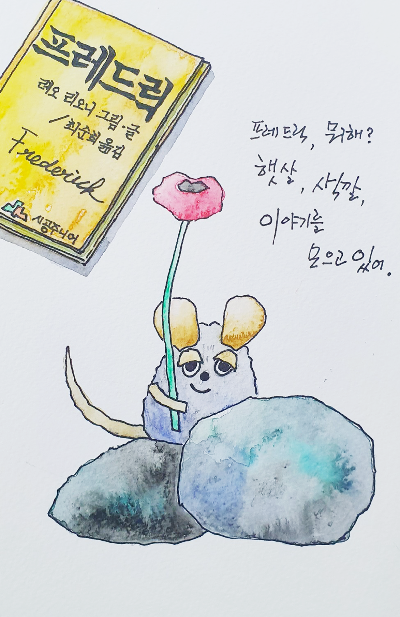 프레드릭
레오 리오니 그림·글
/최순희 옮김
Frederick
시공주니어
프레드릭, 뭐해?
햇살, 색깔,
이야기를
모으고 있어.